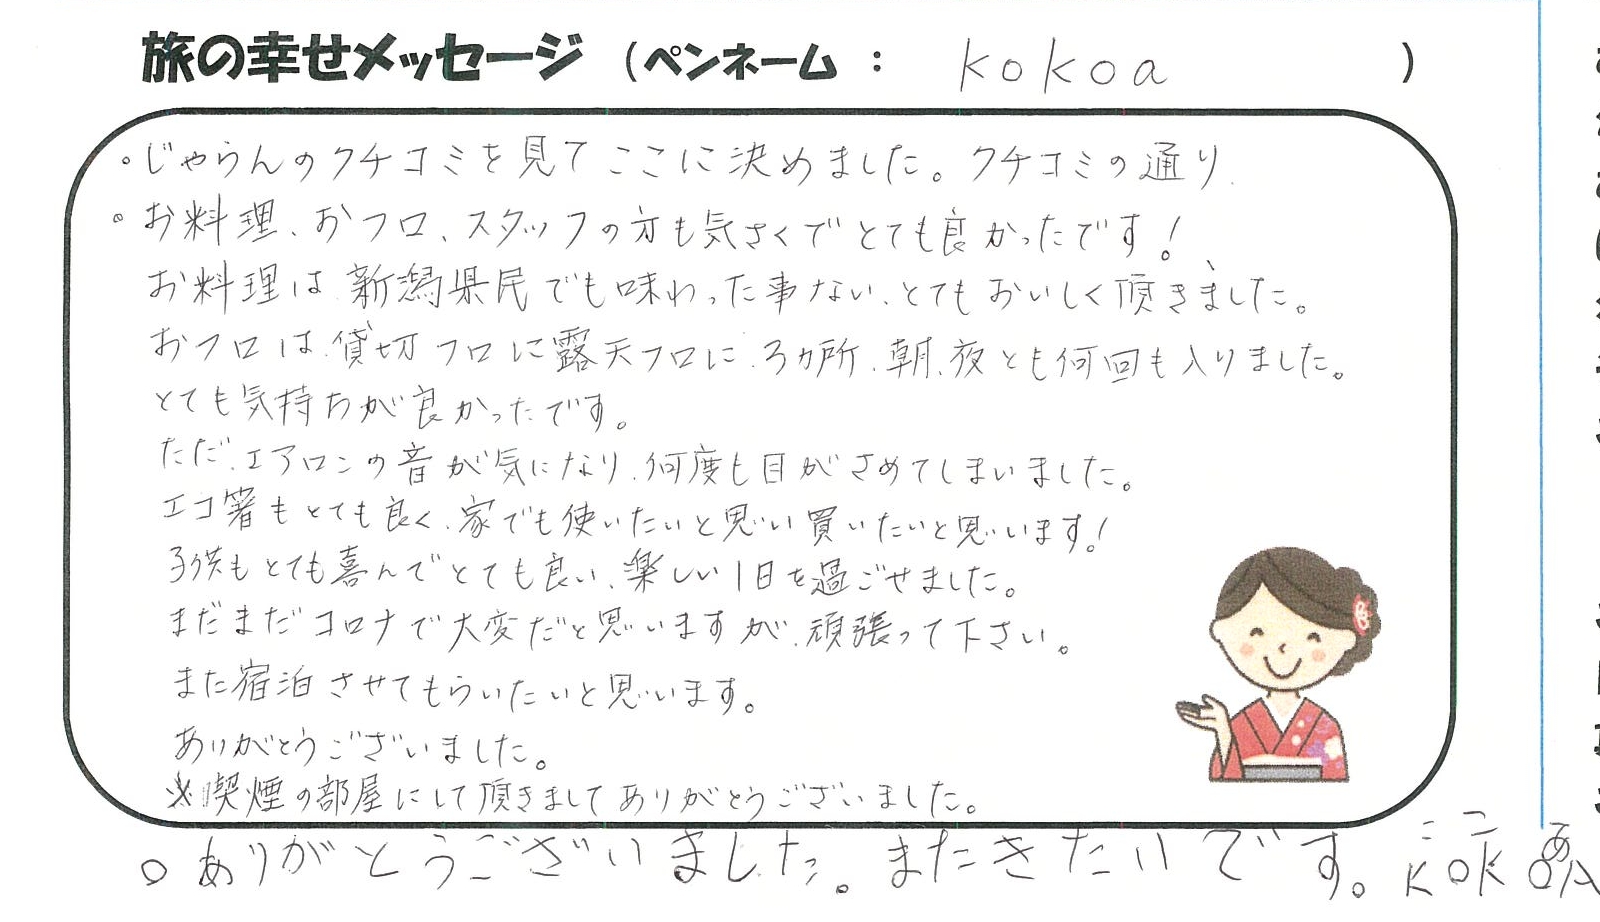 旅の幸せメッセージ （ペンネーム ： kokoa ）
・じゃらんのクチコミを見てここに決めました。クチコミの通り
・お料理、おフロ、スタッフの方も気さくでとても良かったです！
お料理は、新潟県民でも味わった事ない、とてもおいしく頂きました。
おフロは、貸切フロに露天フロに、3ヵ所、朝、夜とも何回も入りました。
とても気持ちが良かったです。
ただ、エアロンの音が気になり、何度も目がさめてしまいました。
エコ箸もとても良く、家でも使いたいと思い買いたいと思います！
子供もとても喜んでとても良い、楽しい1日を過ごせました。
まだまだコロナで大変だと思いますが、頑張って下さい。
また宿泊させてもらいたいと思います。
ありがとうございました。
※喫煙の部屋にして頂きましてありがとうございました。
○ありがとうございました。またきたいです。
ここあ
KOKOA